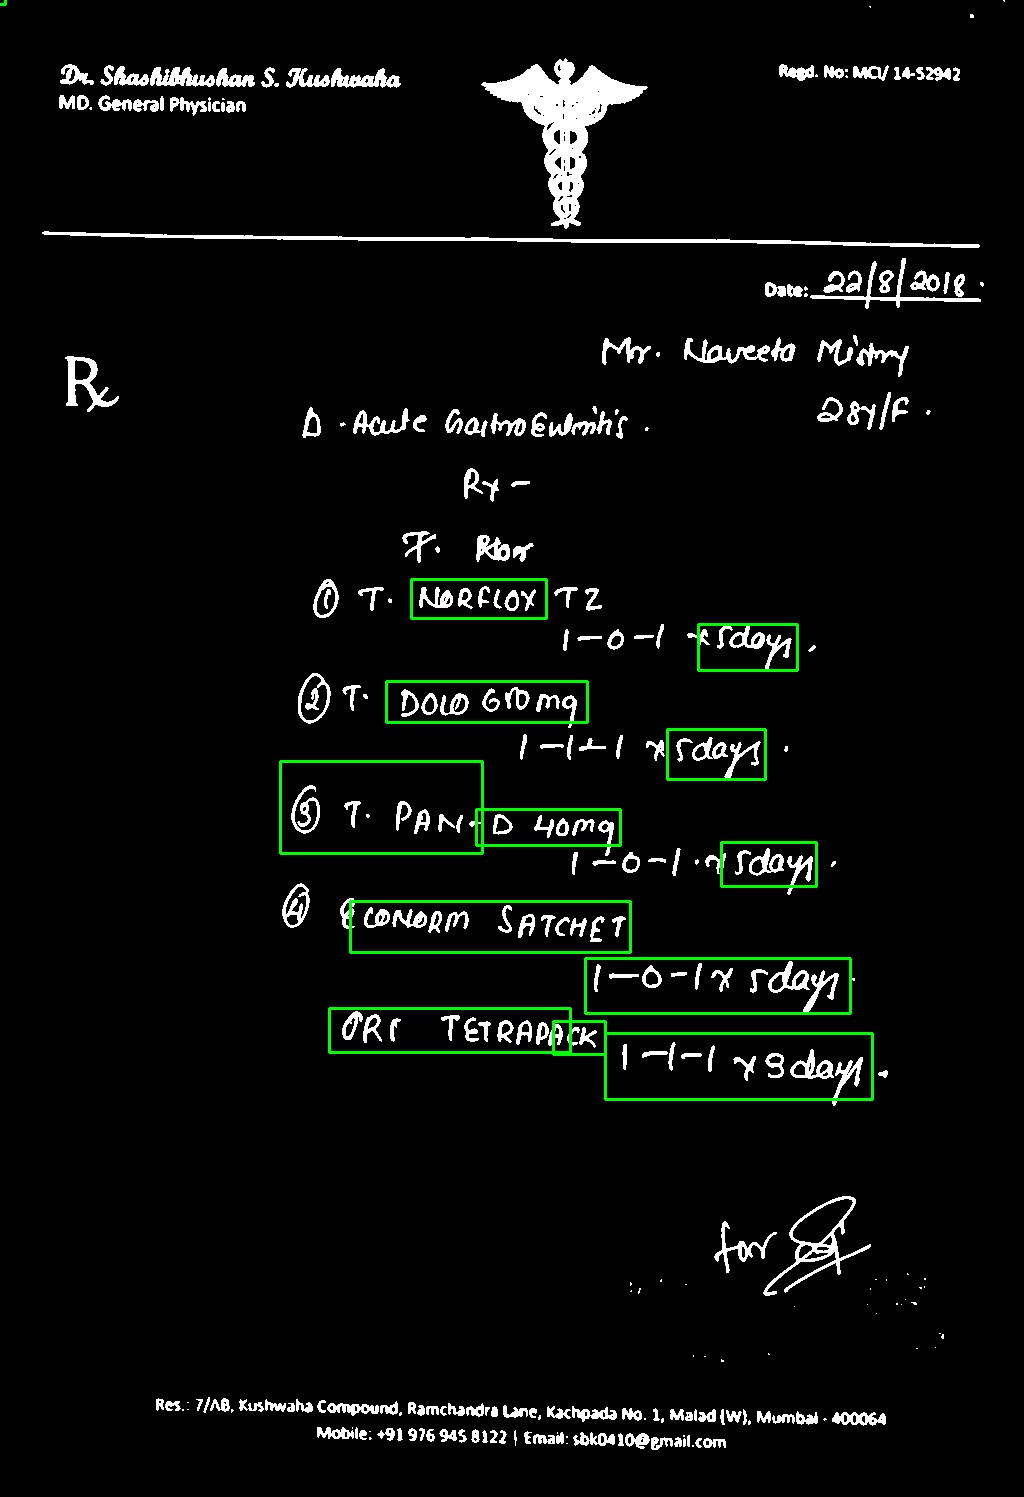 Dr. Shashibhushan S. Kushwaha
MD. General Physician
Regd. No: MCI/ 14-52942
Date: 22/8/2018.
Mr. Naveeta Mistry
28Y/F.
D - Acute
Rx -
① T. NORFLOX TZ
1-0-1 x 5days.
② T. DOLO 650mg
1-1-1 x 5days.
③ T. PAN-D 40mg
1-0-1 x 5days.
④ ECONORM SATCHET
1-0-1 x 5days.
ORS TETRAPACK
1-1-1 x 3days.
for
Res.: 7/AB, Kushwaha Compound, Ramchandra Lane, Kachpada No. 1, Malad (W), Mumbai - 400064
Mobile: +91 976 945 8122 | Email: sbk0410@gmail.com